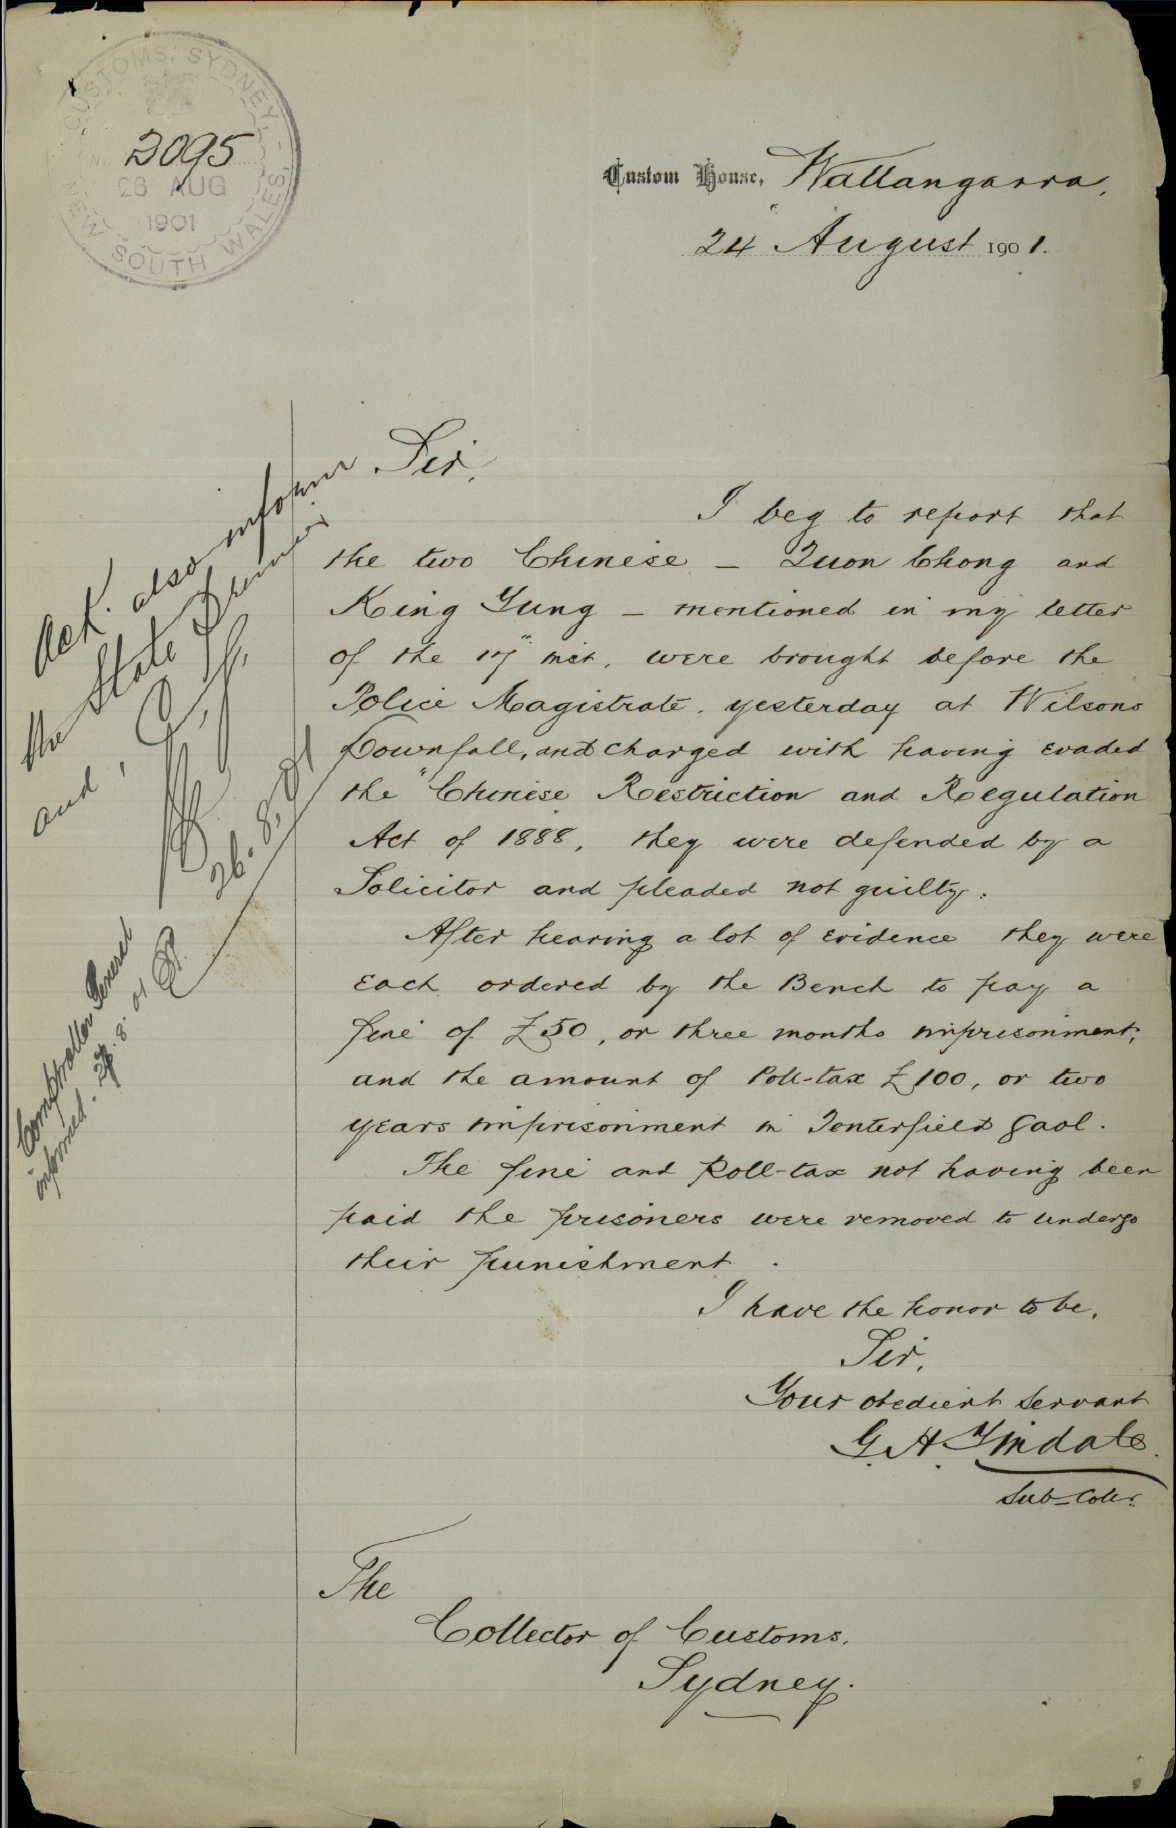 CUSTOMS, SYDNEY,
NEW SOUTH WALES,
No. 2095
26 AUG
1901
Custom House, Wallangarra,
24 August 1901.
Ack. also inform
the State Premier
and C. G.
26.8.01
Comptroller General
informed. 27.8.01
Sir,
I beg to report that
the two Chinese — Quon Chong and
King Yung — mentioned in my letter
of the 17" inst, were brought before the
Police Magistrate, yesterday at Wilsons
Downfall, and charged with having evaded
the "Chinese Restriction and Regulation
Act of 1888, they were defended by a
Solicitor and pleaded not guilty.
After hearing a lot of evidence they were
each ordered by the Bench to pay a
fine of £50, or three months imprisonment;
and the amount of Poll-tax £100, or two
years imprisonment in Tenterfield Gaol.
The fine and Poll-tax not having been
paid the prisoners were removed to undergo
their punishment.
I have the honor to be,
Sir,
Your obedient servant
G. H. Tindale.
Sub-Collr.
The
Collector of Customs.
Sydney.